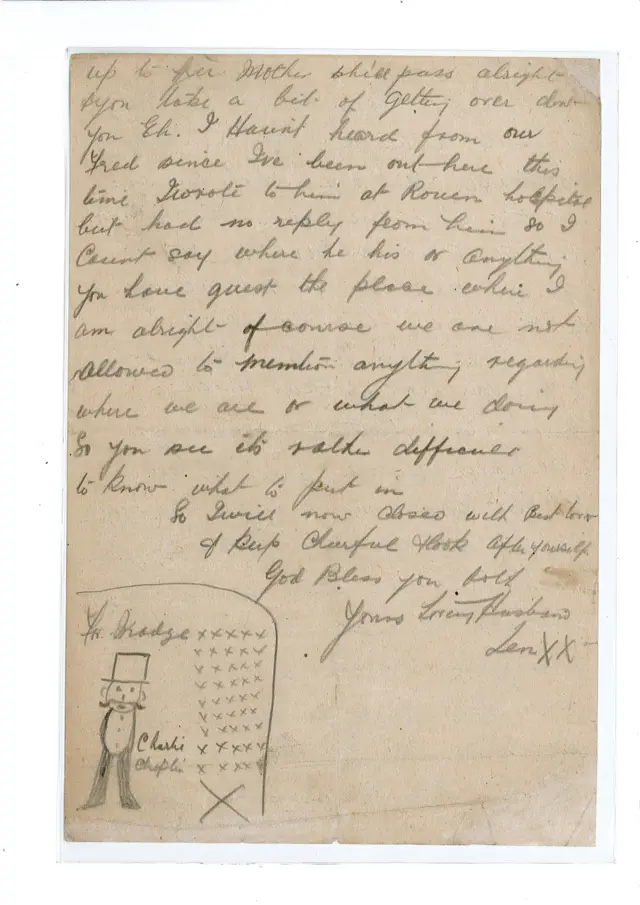 up to her Mother she'll pass alright
& you take a bit of Getting over dont
you Eh. I Havnt heard from our
Fred since I've been out here this
time I wrote to him at Rouen hospital
but had no reply from him so I
Cannt say where he his or anything
you have guest the place where I
am alright of course we are not
allowed to mention anything regarding
where we are or what we doing
So you see its rather difficult
to know what to put in
So I will now closed with Best Love
& keep Cheerful & look after yourself
God Bless you both
Yours Loving Husband
Len XX
For Madge xxxxx
xxxxx
xxxxx
xxxxx
xxxxx
xxxxx
xxxxx
Charlie x xxxx
Chaplin x xxxx
X